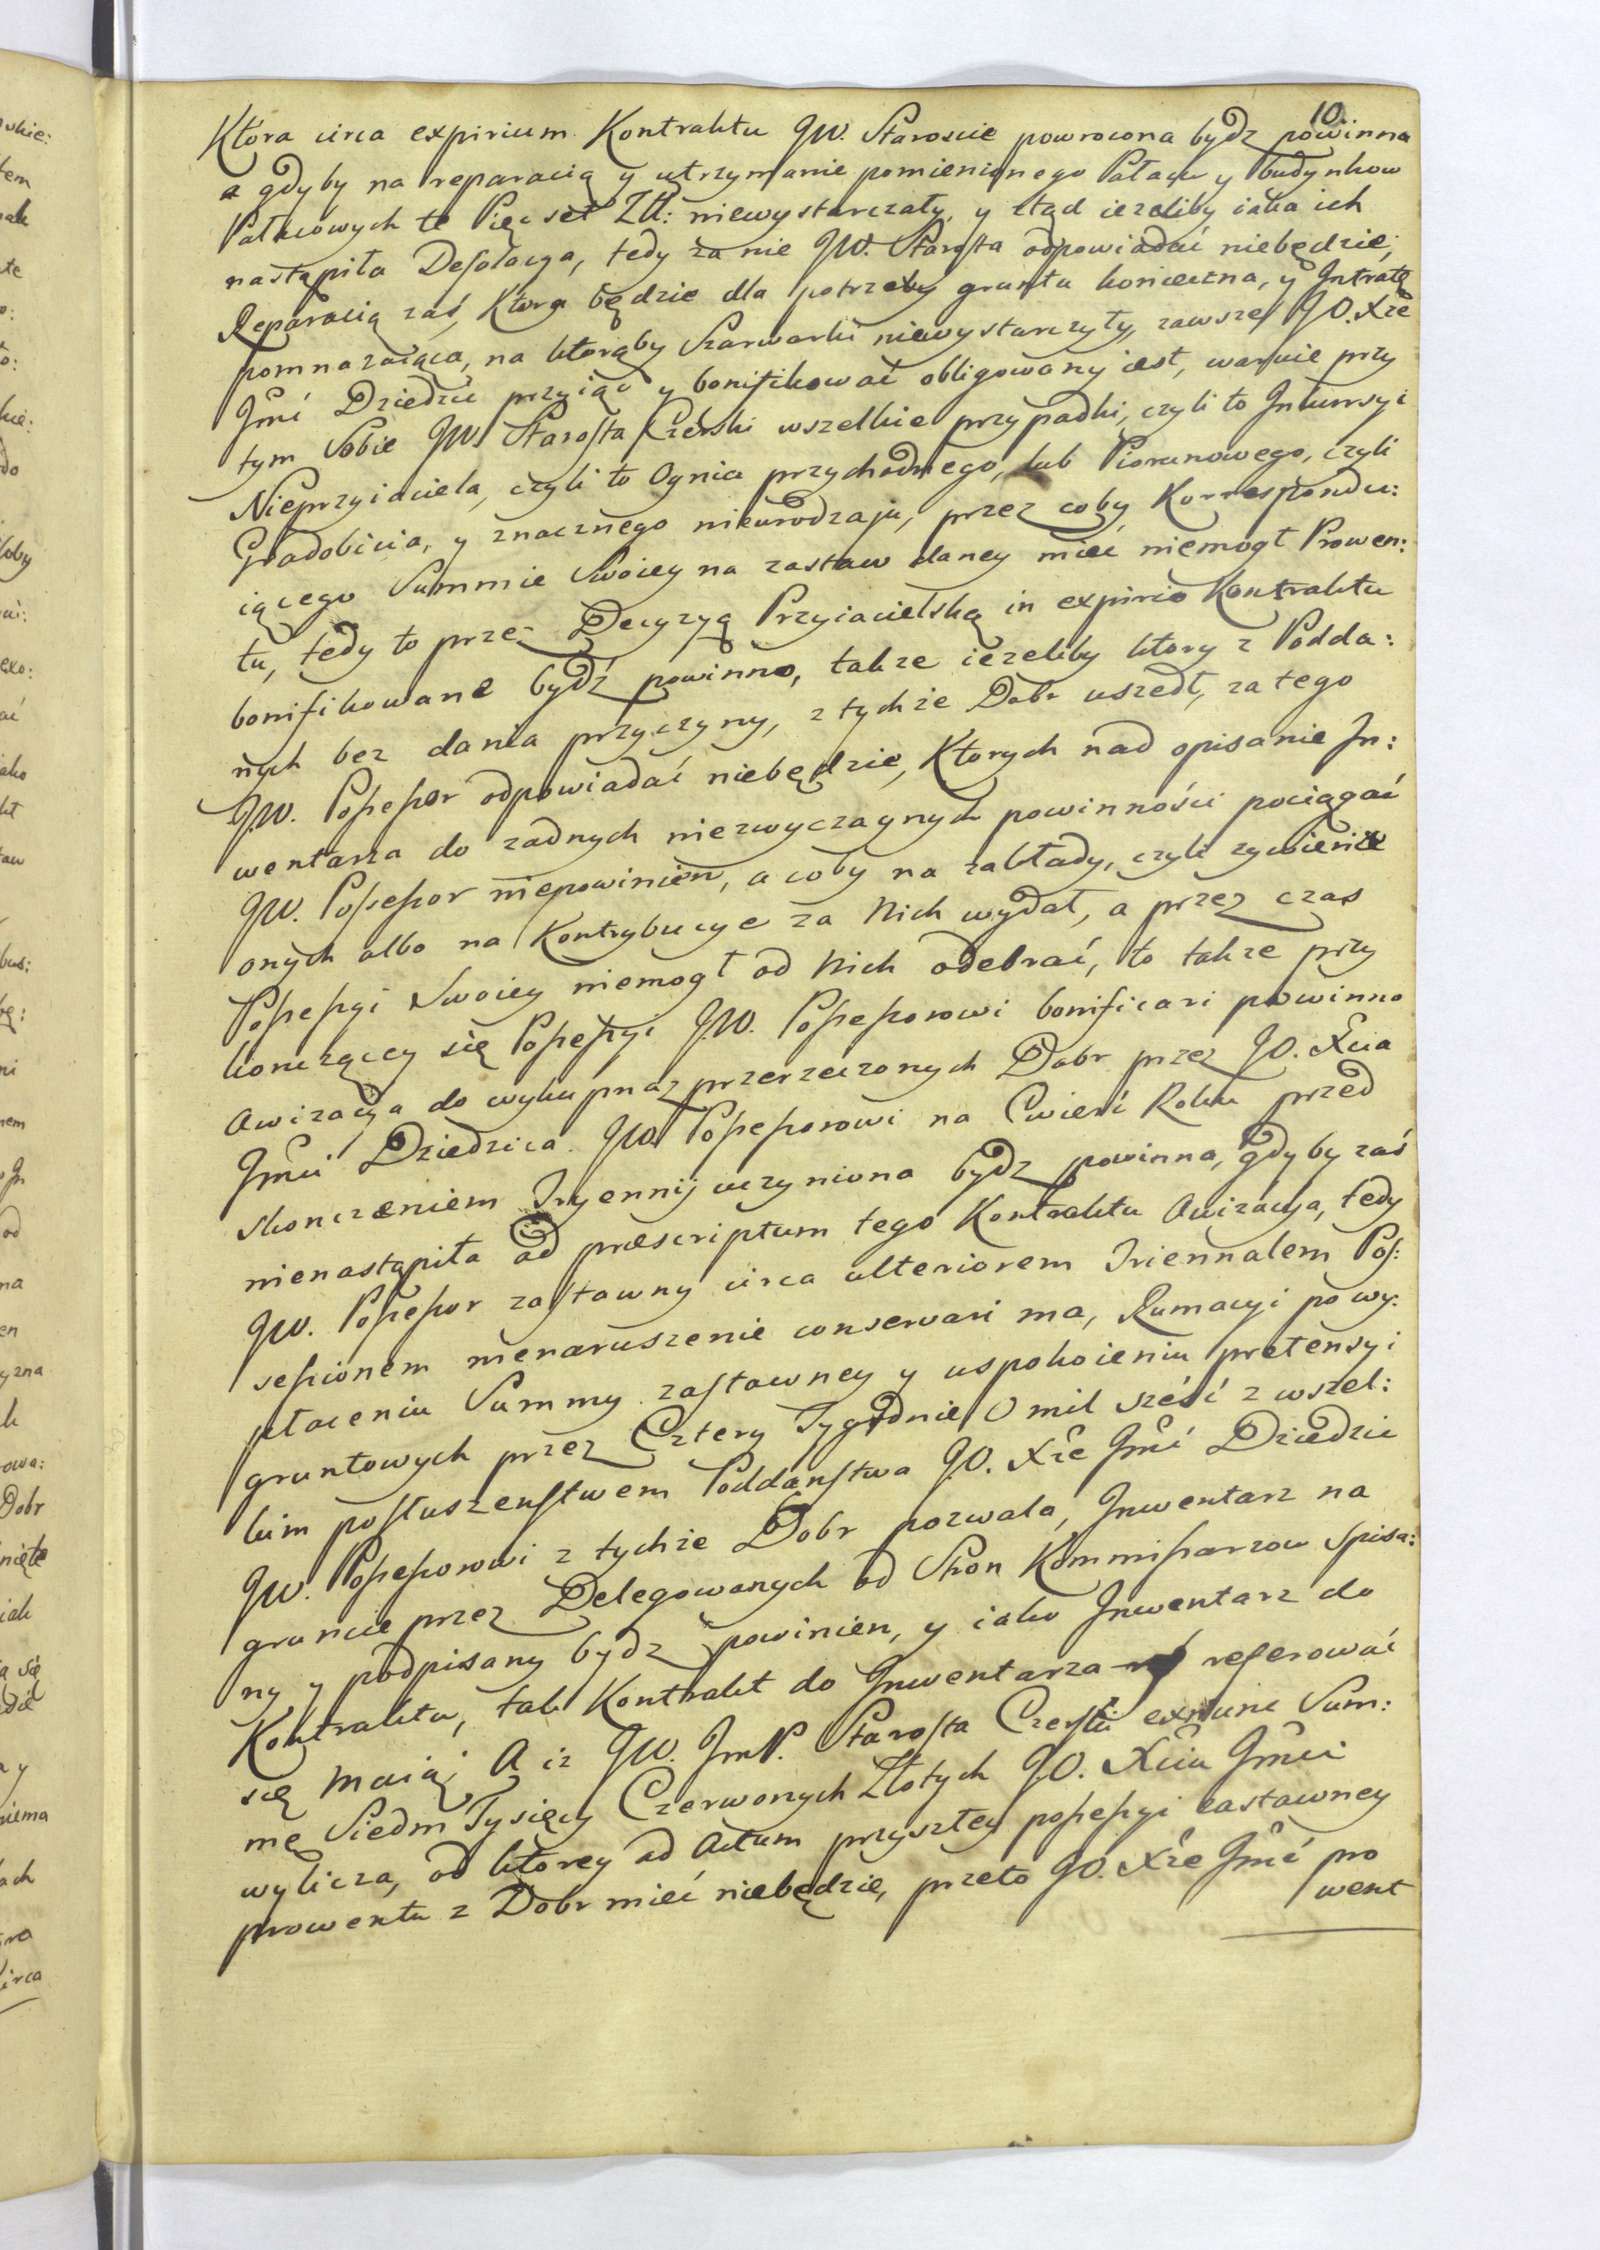 10
Ktora circa expirium Kontraktu JW. Staroscie powrocona bydz powinna
a gdyby na reparacią y utrzymanie pomienionego Pałacu y budynkow
Pałacowych te Pięcset Złł: niewystarczały, y ztąd iezeliby iaka ich
nastąpiła Desolacya, tedy za nie JW. Starosta odpowiadać niebędzie;
Reparacią zaś, Ktora będzie dla potrzeby gruntu konieczna, y Intratę
pomnazaiąca, na ktorąby Szarwarki niewystarczyły, zawsze JO. Xże
Jmć Dziedzic przyiąć y bonifikować obligowany iest, waruie przy
tym Sobie JW. Starosta Czerski wszelkie przypadki, czyli to Inkursyi
Nieprzyiaciela, czyli to Ognia przychodnego, lub Piorunowego, czyli
Gradobicia, y znacznego nieurodzaju, przez coby Korrespondu:
iącego Summie Swoiey na zastaw daney mieć niemogł Prowen:
tu, tedy to przez Decyzyą Przyiacielską in expirio Kontraktu
bonifikowane bydź powinno, takze iezeliby ktory z Podda:
nych bez dania przyczyny, z tychze Dobr uszedł, za tego
JW. Possessor odpowiadać niebędzie, Ktorych nad opisanie In:
wentarza do zadnych niezwyczaynych powinności pociągać
JW. Possessor niepowinien, a coby na zakłady, czyli zywienie
onych albo na Kontrybucye za Nich wydał, a przez czas
Possessyi Swoiey niemogł od Nich odebrać, to takze przy
konczącey się Possessyi JW. Possessorowi bonificari powinno
Awizacya do wykupna przerzeczonych Dobr przez JO. Xcia
Jmci Dziedzica JW Possessorowi na Cwierć Roku przed
skonczeniem Tryennij uczyniona bydz powinna, gdyby zaś
nienastąpiła ad præscriptum tego Kontraktu Awizacya, tedy
JW. Possessor zastawny circa ulteriorem Triennalem Pos:
sessionem nienaruszenie conservari ma, Rumacyi po wy:
płaceniu Summy zastawney y uspokoieniu pretensyi
gruntowych przez Cztery Tygodnie o mil sześć z wszel:
kim posłuszenstwem Poddanstwa JO. Xże Jmć Dziedzic
JW. Possessorowi z tychze Dobr pozwala, Inwentarz na
gruncie przez Delegowanych od Stron Kommissarzow spisa:
ny y podpisany bydz powinien, y iako Inwentarz do
Kontraktu, tak Kontrakt do Inwentarza referować
się maią; A iz JW. JmP. Starosta Czerski ex nunc Sum:
mę Siedm Tysięcy Czerwonych Złotych JO. Xciu Jmci
wylicza, od ktorey ad Actum przyszłey possessyi zastawney
prowentu z Dobr mieć niebędzie, przeto JO. Xże Jmć pro
went